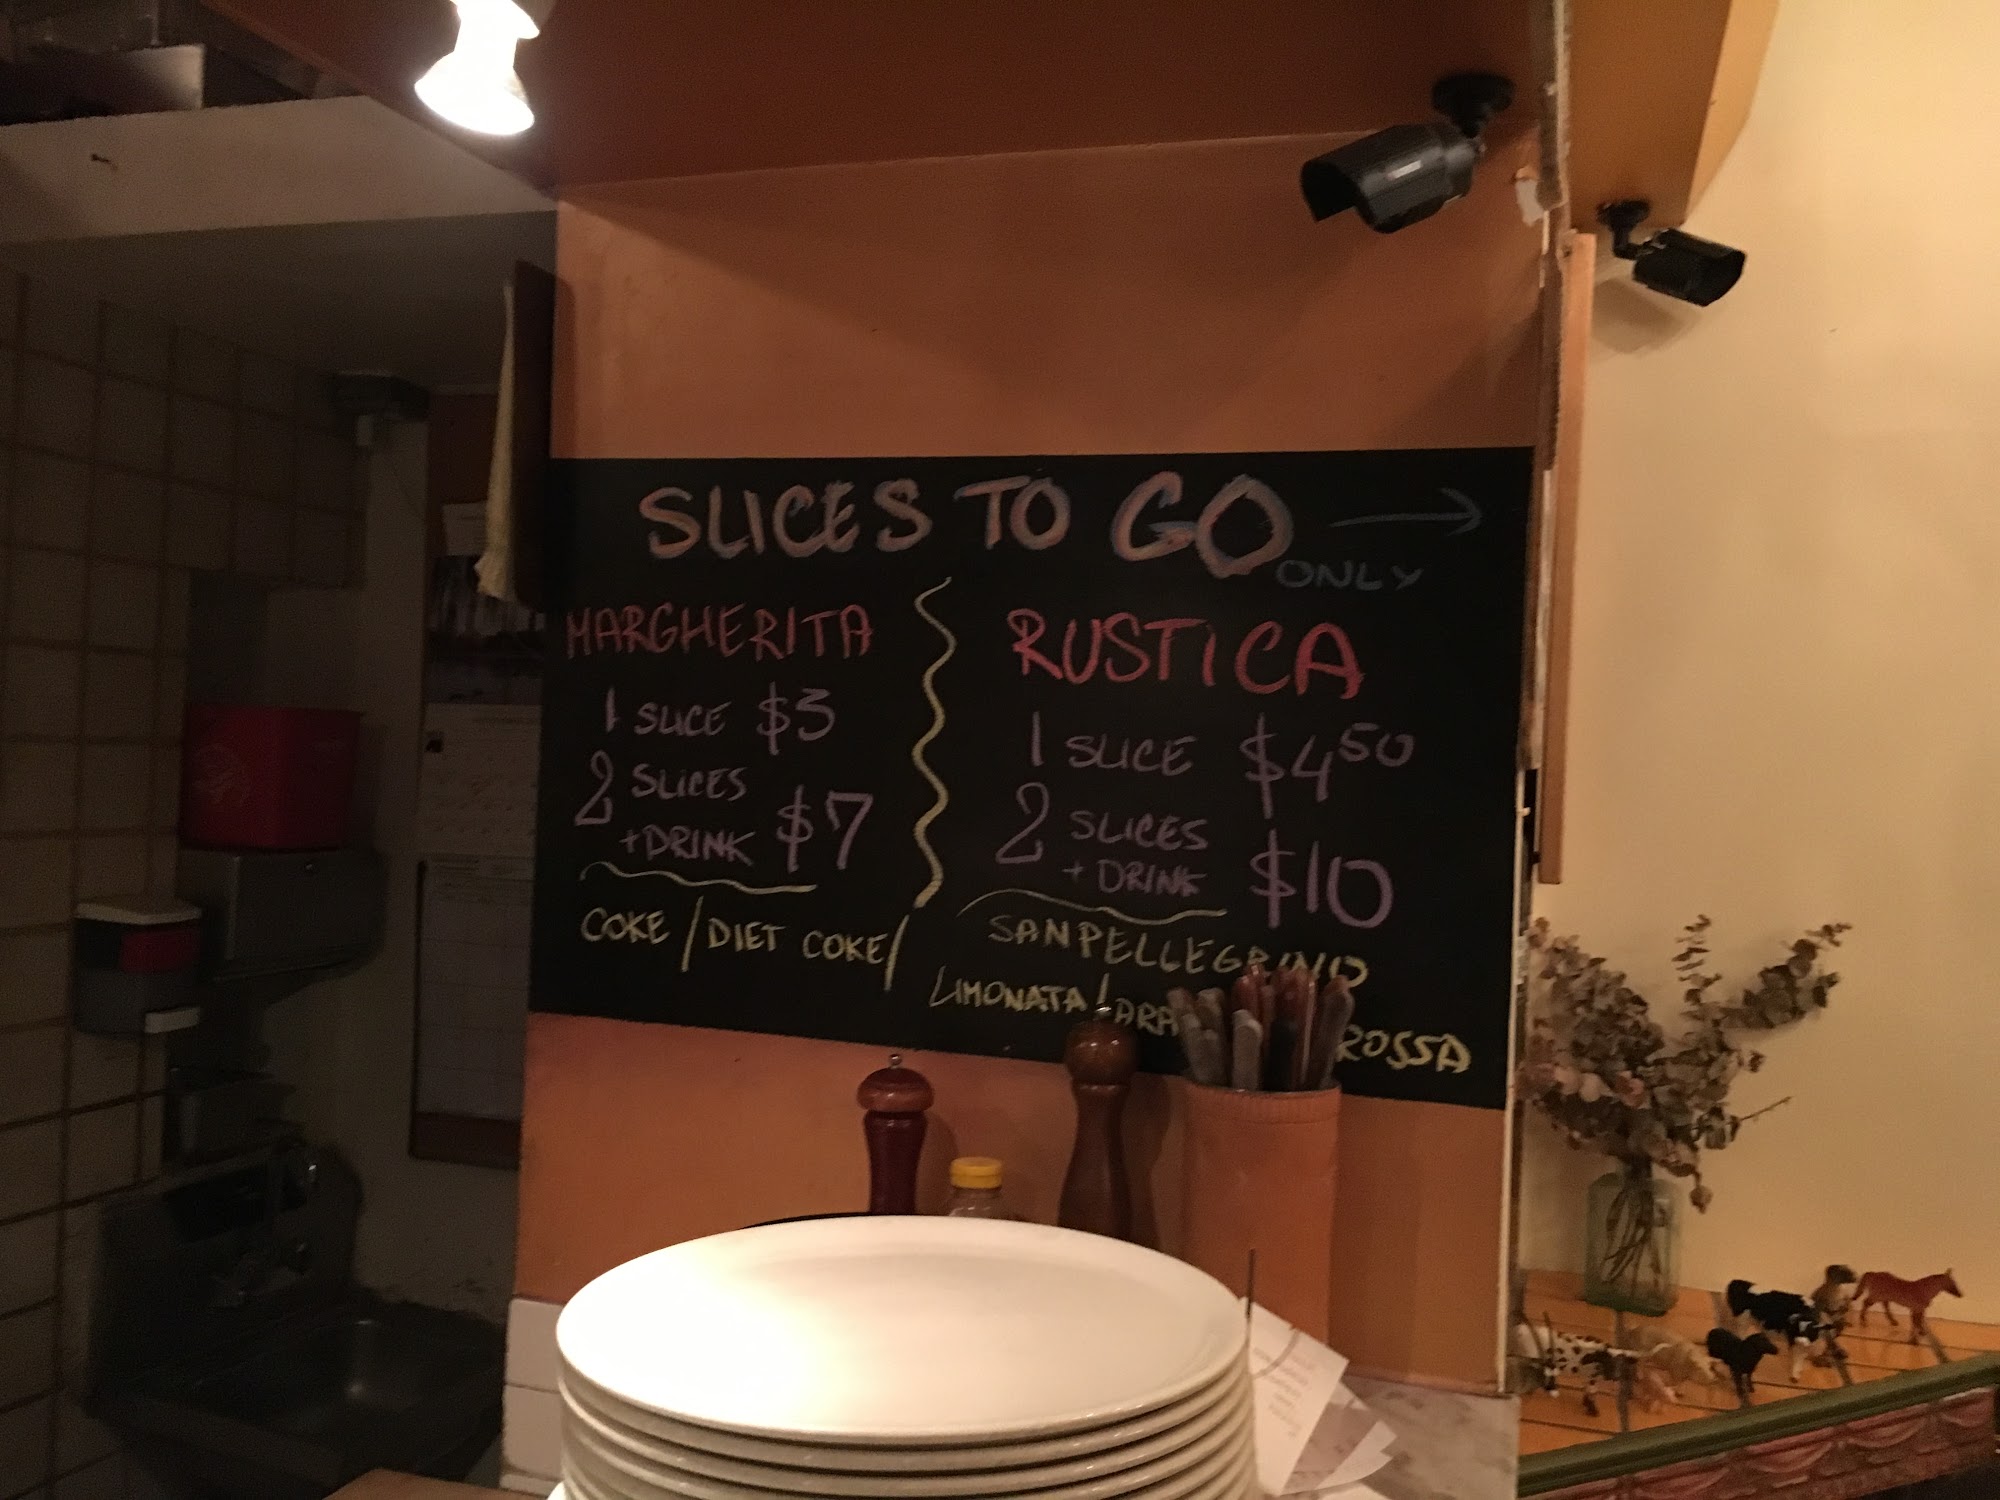 SLICES TO GO ONLY
MARGHERITA
1 SLICE $3
2 SLICES
+ DRINK $7
RUSTICA
1 SLICE $4 50
2 SLICES
+ DRINK $10
COKE / DIET COKE /
SANPELLEGRINO
LIMONATA / ROSSA